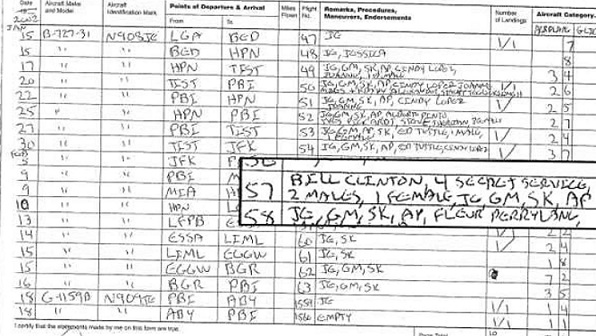 Date Aircraft Make and Model Aircraft Identification Mark Points of Departure & Arrival Miles Flown Flight No. Remarks, Procedures, Maneuvers, Endorsements Number of Landings Aircraft Category
From To AIRPLANE
2002
JAN
15 B-727-31 N908JE LGA BED 47 JG 1/1
15 " " BED HPN 48 JG, JESSICA 8
17 " " HPN TIST 49 JG, GM, SK, AP, CINDY LOPEZ, 3 4
20 " " TIST PBI 50 JG, GM, SK, AP, CINDY LOPEZ 2 6
22 " " PBI HPN 51 JG, GM, SK, AP, CINDY LOPEZ 2 5
25 " " HPN PBI 52 JG, GM, SK, AP, 2 7
27 " " PBI TIST 53 JG, GM, AP, SK, ED TUTTLE, 1 MALE, 2 4
30 " " TIST JFK 54 JG, GM, SK, AP, ED TUTTLE, 3 7
" " JFK
9 " " PBI
9 " " MIA
10 " " HPN
13 " " LFPB
57 BILL CLINTON, 4 SECRET SERVICE,
2 MALES, 1 FEMALE, JG GM, SK, AP
58 JG, GM, SK, AP, FLEUR PERRY LANG,
14 " " ESSA LIML 60 JG, SK 2 4
15 " " LIML EGGW 61 JG, SK 1 8
15 " " EGGW BGR 62 JG, GM, SK 7 2
16 " " BGR PBI 63 JG, GM, SK 3 5
18 G-1159B N909JE PBI ABY 1559 JG 1/1 1 4
18 " " ABY PBI 1560 EMPTY 1/1 1 1
I certify that the statements made by me on this form are true.